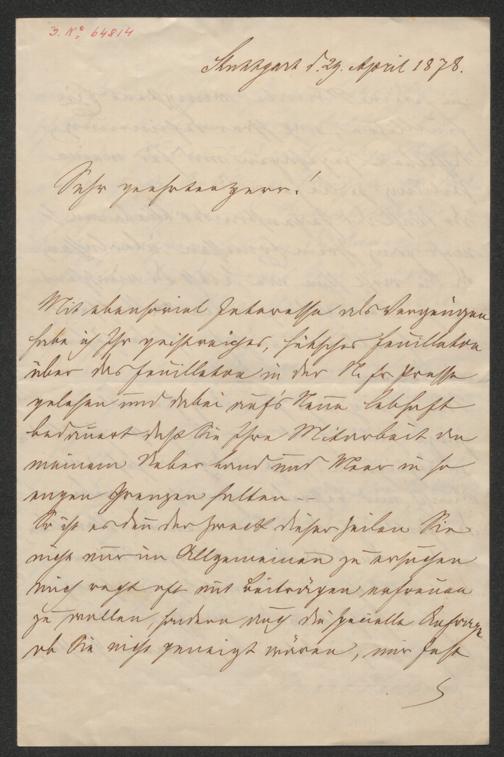 J. No. 64814
Stuttgart d. 29. April 1878.
Sehr geehrter Herr!
Mit ebensoviel Interesse als Vergnügen
habe ich Ihr geistreiches, hübsches Feuilleton
über das Feuilleton in der N. fr. Presse
gelesen und dabei auf's Neue lebhaft
bedauert daß Sie Ihre Mitarbeit an
meinem Ueber Land und Meer in so
engen Grenzen halten –
So ist es den der Zweck dieser Zeilen Sie
nicht nur im Allgemeinen zu ersuchen
mich recht oft mit Beiträgen erfreuen
zu wollen, sondern auch die specielle Anfrage
ob Sie nicht geneigt wären, mir